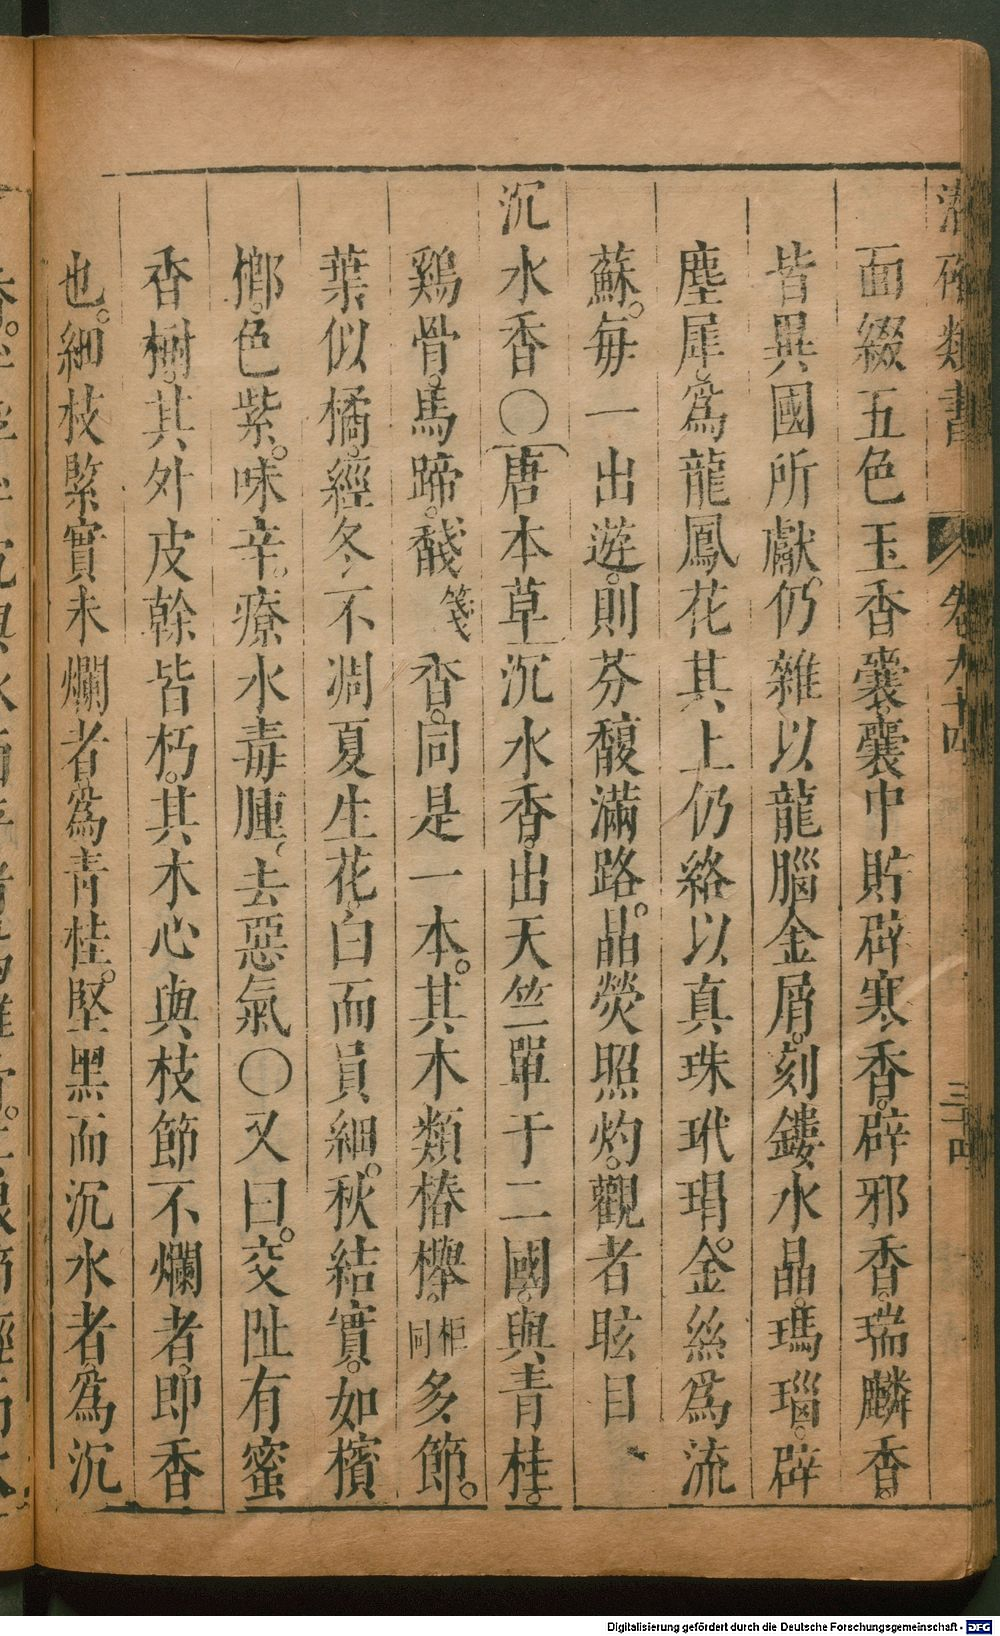 潛確類書 卷九十四 三十四
面綴五色玉香囊囊中貯辟寒香。辟邪香。瑞麟香。
皆異國所獻。仍雜以龍腦金屑。刻鏤水晶瑪瑙。辟
塵犀。爲龍鳳花其上仍絡以真珠玳瑁。金絲爲流
蘇。每一出遊。則芬馥滿路。晶熒照灼。觀者眩目
沉水香○唐本草沉水香。出天竺單于二國。與青桂。
鷄骨。馬蹄。馢箋香。同是一本。其木類椿櫸。柜同多節。
葉似橘。經冬不凋夏生花。白而員細。秋結實。如檳
榔。色紫。味辛。療水毒腫。去惡氣○又曰。交趾有蜜
香樹。其外皮幹皆朽。其木心與枝節不爛者。即香
也。細枝緊實未爛者。爲青桂。堅黑而沉水者。爲沉
Digitalisierung gefördert durch die Deutsche Forschungsgemeinschaft - DFG